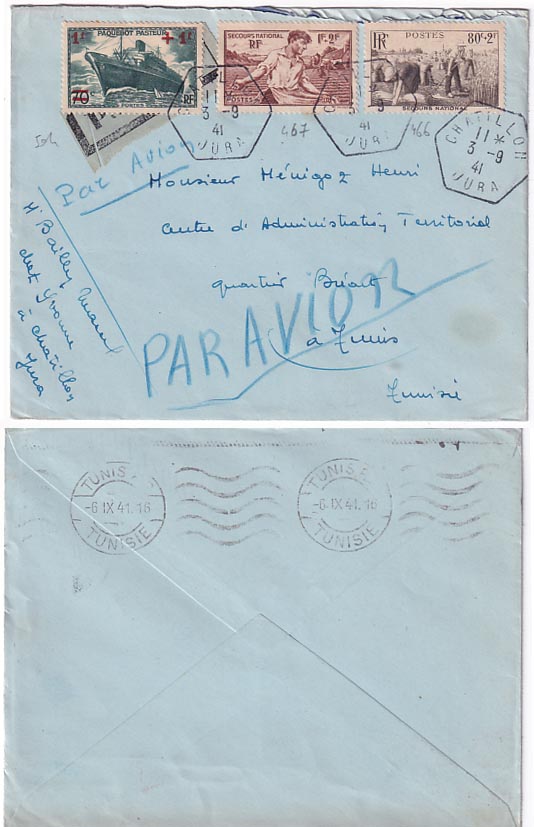 PAQUEBOT PASTEUR
1F + 1F
70
POSTES RF
SECOURS NATIONAL
RF 1F+2F
POSTES
RF POSTES 80c+2F
SECOURS NATIONAL
11
3 -9
41
JURA
3 -9
41
JURA
CHATILLON
11 *
3 -9
41
JURA
467
466
Par Avion
Monsieur Ménigoz Henri
Centre d'Administration Territorial
quartier
à Tunis
Tunisie
PAR AVION
Mr Bailly
chez Yvonne
à Chatillon
Jura
TUNIS
-6 IX 41.16
TUNISIE
TUNIS
-6 IX 41.16
TUNISIE